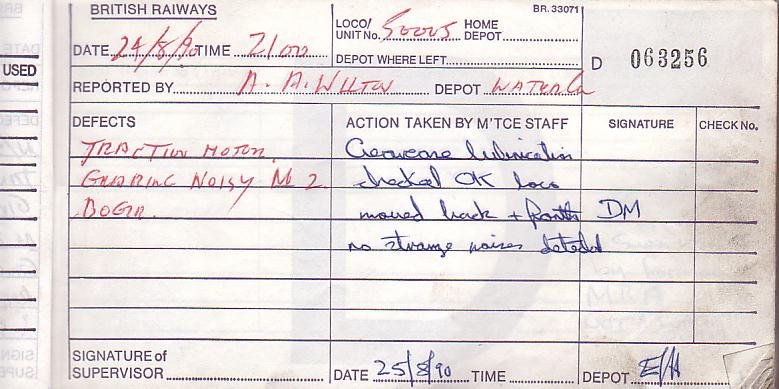 BRITISH RAILWAYS
BR. 33071
LOCO/ UNIT No. 50005 HOME DEPOT
DATE 24/8/90 TIME 2100
DEPOT WHERE LEFT
D 063256
USED
REPORTED BY A. A. WILTON DEPOT WATERLOO
DEFECTS ACTION TAKEN BY M'TCE STAFF SIGNATURE CHECK No.
TRACTION MOTOR Gearcase lubrication
GEARING NOISY No 2 checked OK loco
BOGIE. moved back + forth DM
no strange noises detected
SIGNATURE of
SUPERVISOR DATE 25/8/90 TIME DEPOT E/H